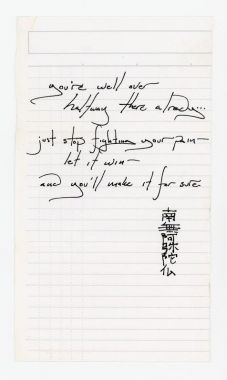 you're well over
halfway there already...
just stop fighting your pain—
let it win—
and you'll make it for sure.
南無阿弥陀仏